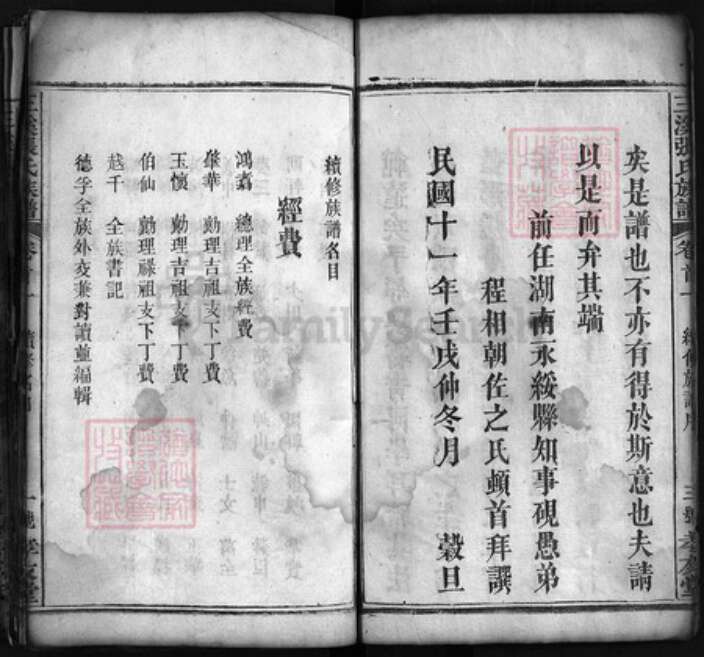 三溪張氏族譜
卷首一
續修族譜序
三號
孝友堂
矣是譜也不亦有得於斯意也夫請
以是而弁其端
前任湖南永綏縣知事硯愚弟
程相朝佐之氏頓首拜譔
民國十一年壬戌仲冬月 穀旦
續修族譜名目
經費
鴻 總理全族經費
華 勷理吉祖支下丁費
玉懷 勷理吉祖支下丁費
伯仙 勷理祿祖支下丁費
越千 全族書記
德孚全族外交兼對讀並編輯
三溪張氏族譜
卷首一
一號
孝友堂
FamilySearch